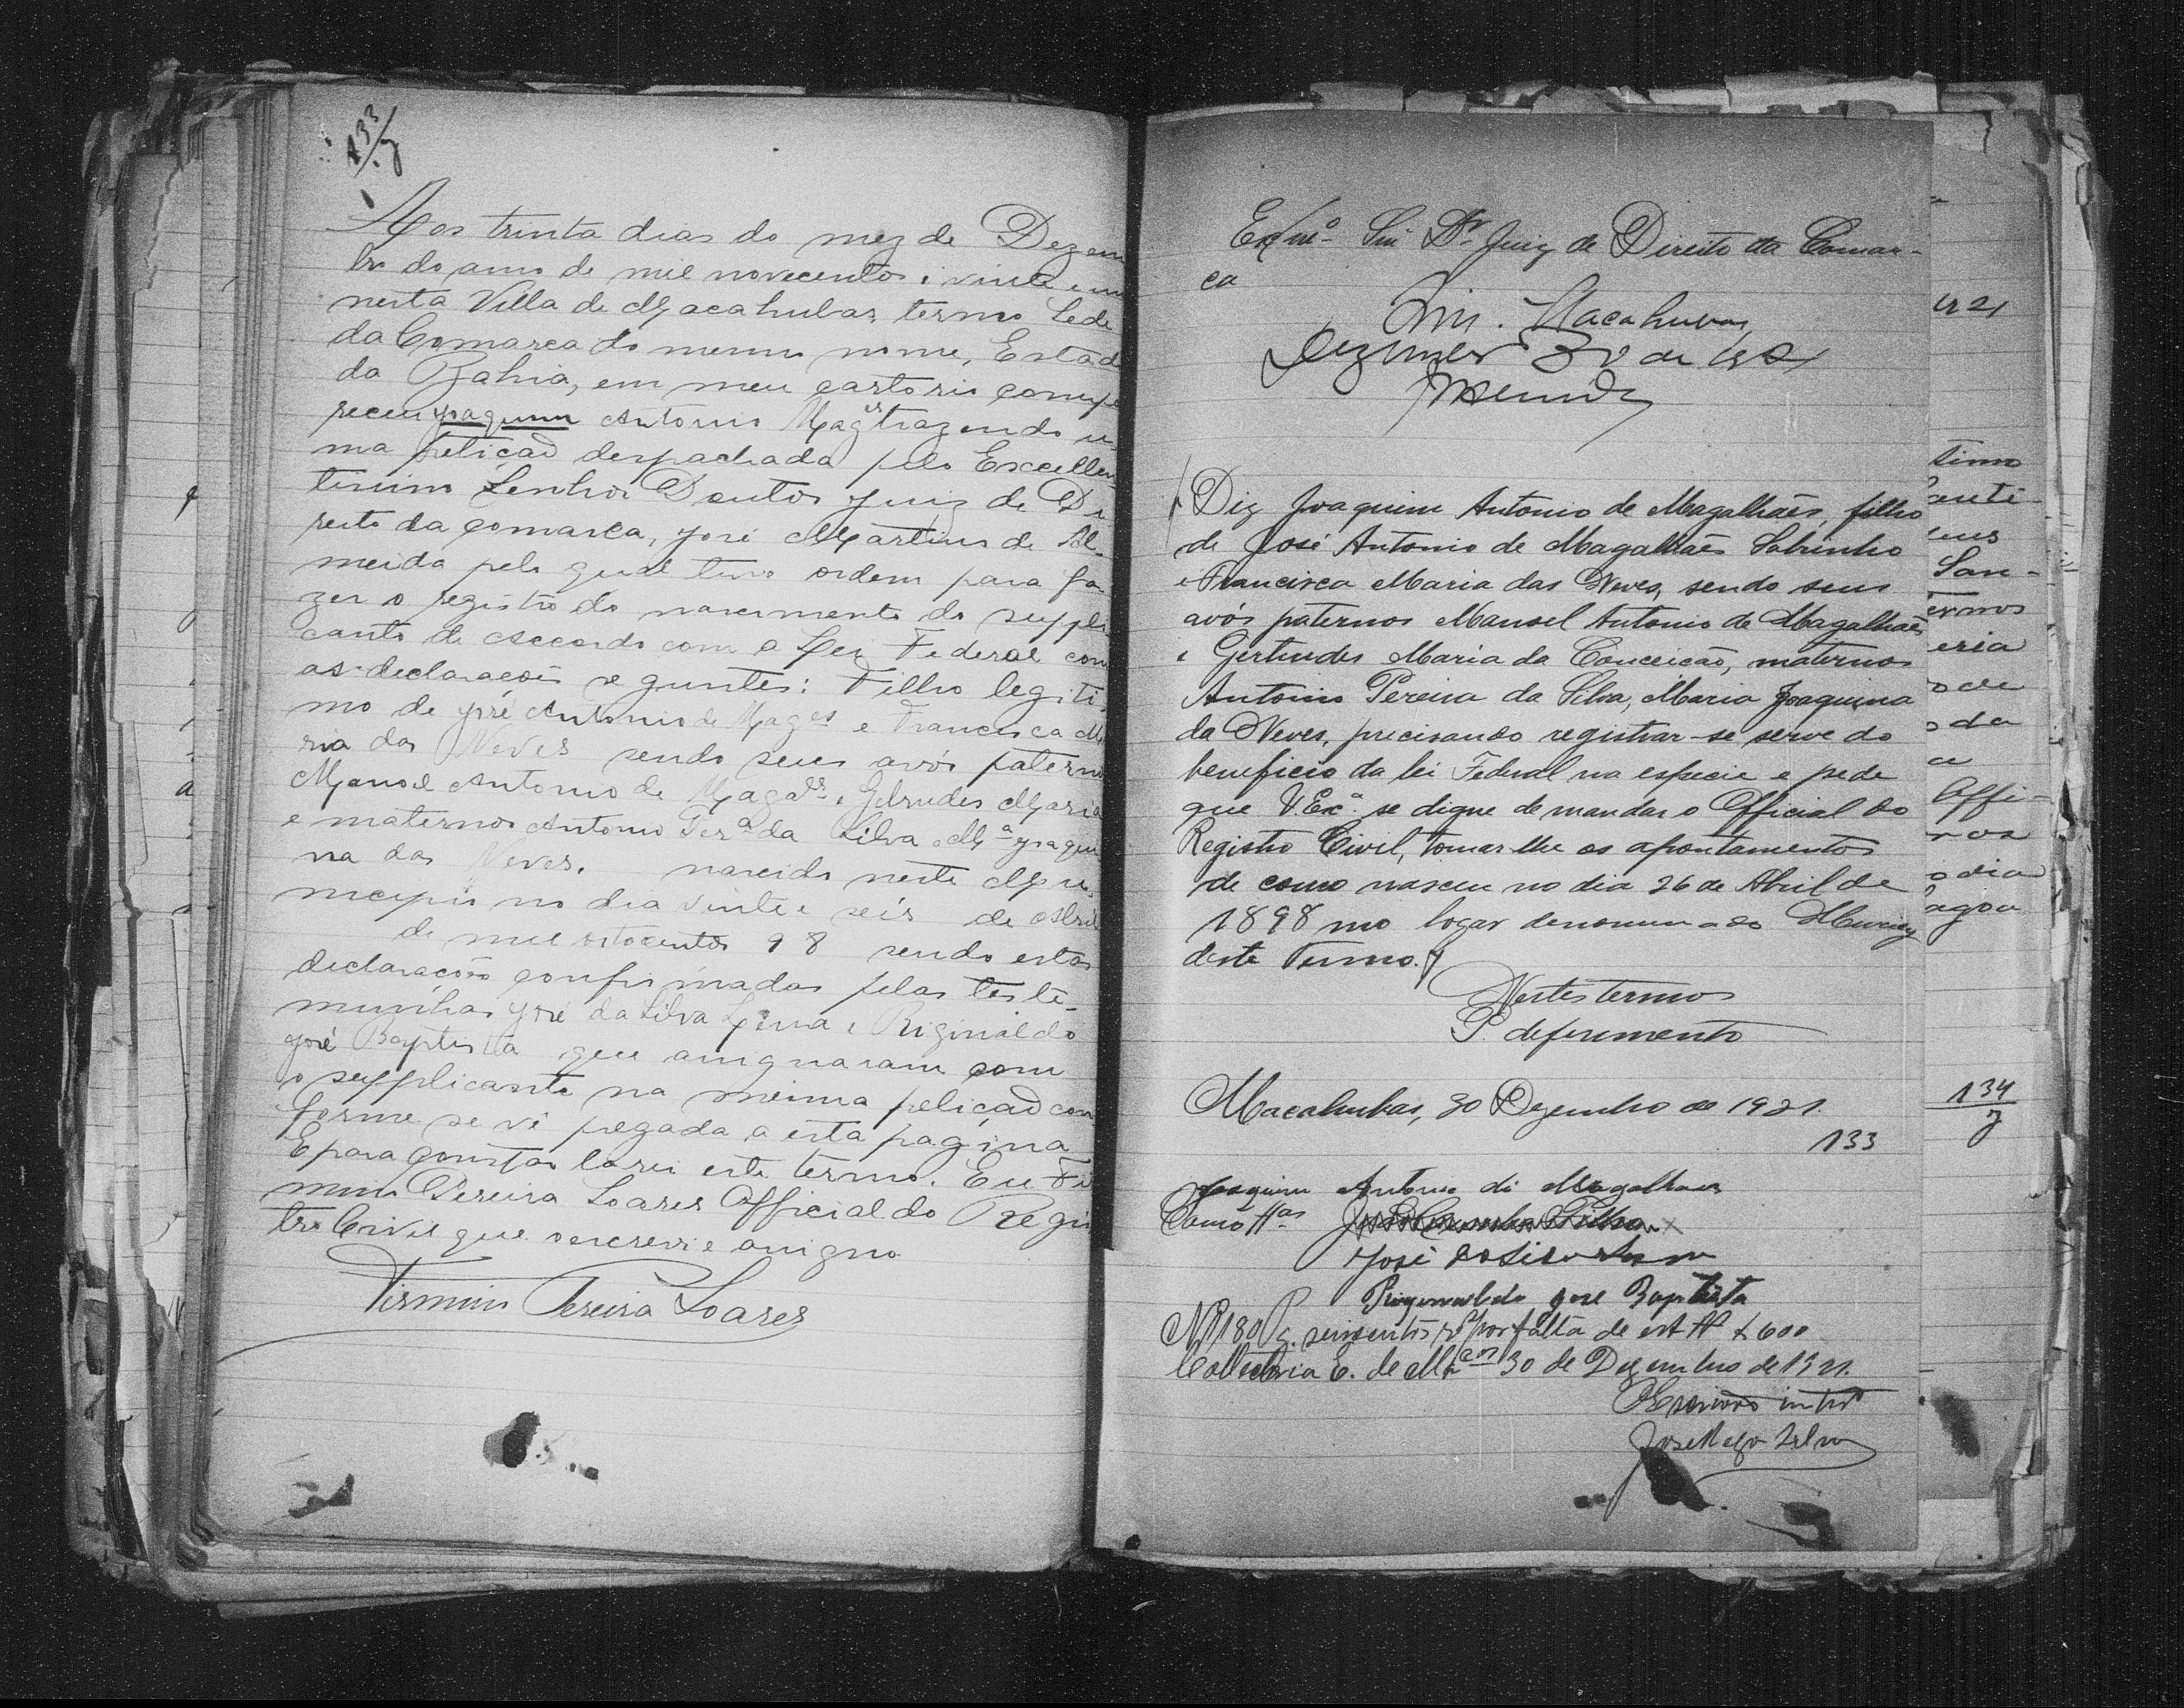 133/7
Aos trinta dias do mez de Dezem
bro do anno de mil novecentos e vinte e um
nesta Villa de Macahubas, termo Sede
da Comarca do mesmo nome, Estad
da Bahia, em meu cartorio compa
receu Joaquim Antonio Mag.es trazendo u
ma petição despachada pelo Excellen
tissimo Senhor Doutor Juiz de Di
reito da Comarca, José Martins de Al-
meida pela qual tive ordem para fa-
zer o registro do nascimento do suppli
cante de accordo com a Ley Federal com
as declarações seguntes: Filho legiti-
mo de José Antonio de Mag.es e Francisca Ma
ria das Neves sendo seus avós paterno
Manoel Antonio de Magães e Getrudes Maria
e maternos Antonio Per.a da Silva e M.a Joaqui
na das Neves. nascido neste Mu-
nicipio no dia vinte e seis de Abril
de mil oitocentos 98 sendo estas
declarações confirmadas pelas teste-
munhas José da Silva e Riginaldo
José Baptista que assignaram com
o supplicante na mesma petição con
forme se vê pregada a esta pagina
E para constar lavrei este termo. Eu Fir
mino Pereira Soares Official do Regis
tro Civil que o escrevi e assigno
Firmino Pereira Soares
Exmo. Snr. Dr. Juiz de Direito da Comar-
ca
Sim. Macahubas,
Dezembro 30 de 1921
Almeida
Diz Joaquim Antonio de Magalhães, filho
de José Antonio de Magalhães Sobrinho
e Francisca Maria das Neves, sendo seus
avós paternos Manoel Antonio de Magalhães
e Gertrudes Maria da Conceição, maternos
Antonio Pereira da Silva, Maria Joaquina
da Neves, precisando registrar-se serve do
beneficio da lei Federal na especie e pede
que V. Exc.a se digne de mandar o Official do
Registro Civil, tomar-lhe os apontamentos
de como nasceu no dia 26 de Abril de
1898 no logar denominado
deste Termo.
Nestes termos
P. deferimento
Macahubas, 30 Dezembro de 1921.
133
Joaquim Antonio di Magalhaes
Como ttas
José da Silva
José Baptista
Nº 180 Pg. seiscentos rs por falta de est. $600
Collectoria E. de 30 de Dezembro de 1921.
O Escrivão intro
José
21
timo
San-
ermos
eria
o de
o da
Offi-
o dia
agoa
134
7